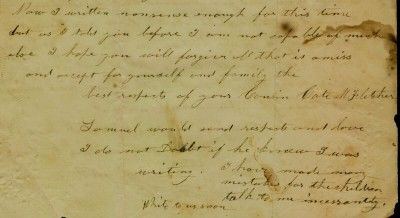 Now I written nonsense enough for this time
but as I told you before I am not capable of much
else I hope you will forgive all that is amiss
and accept for yourself and family the
best respects of your Cousin Cate M Fletcher
Samuel would send respects and love
I do not Doubt if he knew I was
writing. I have made many
mistakes for the children
talk to me incessantly.
Write to us soon